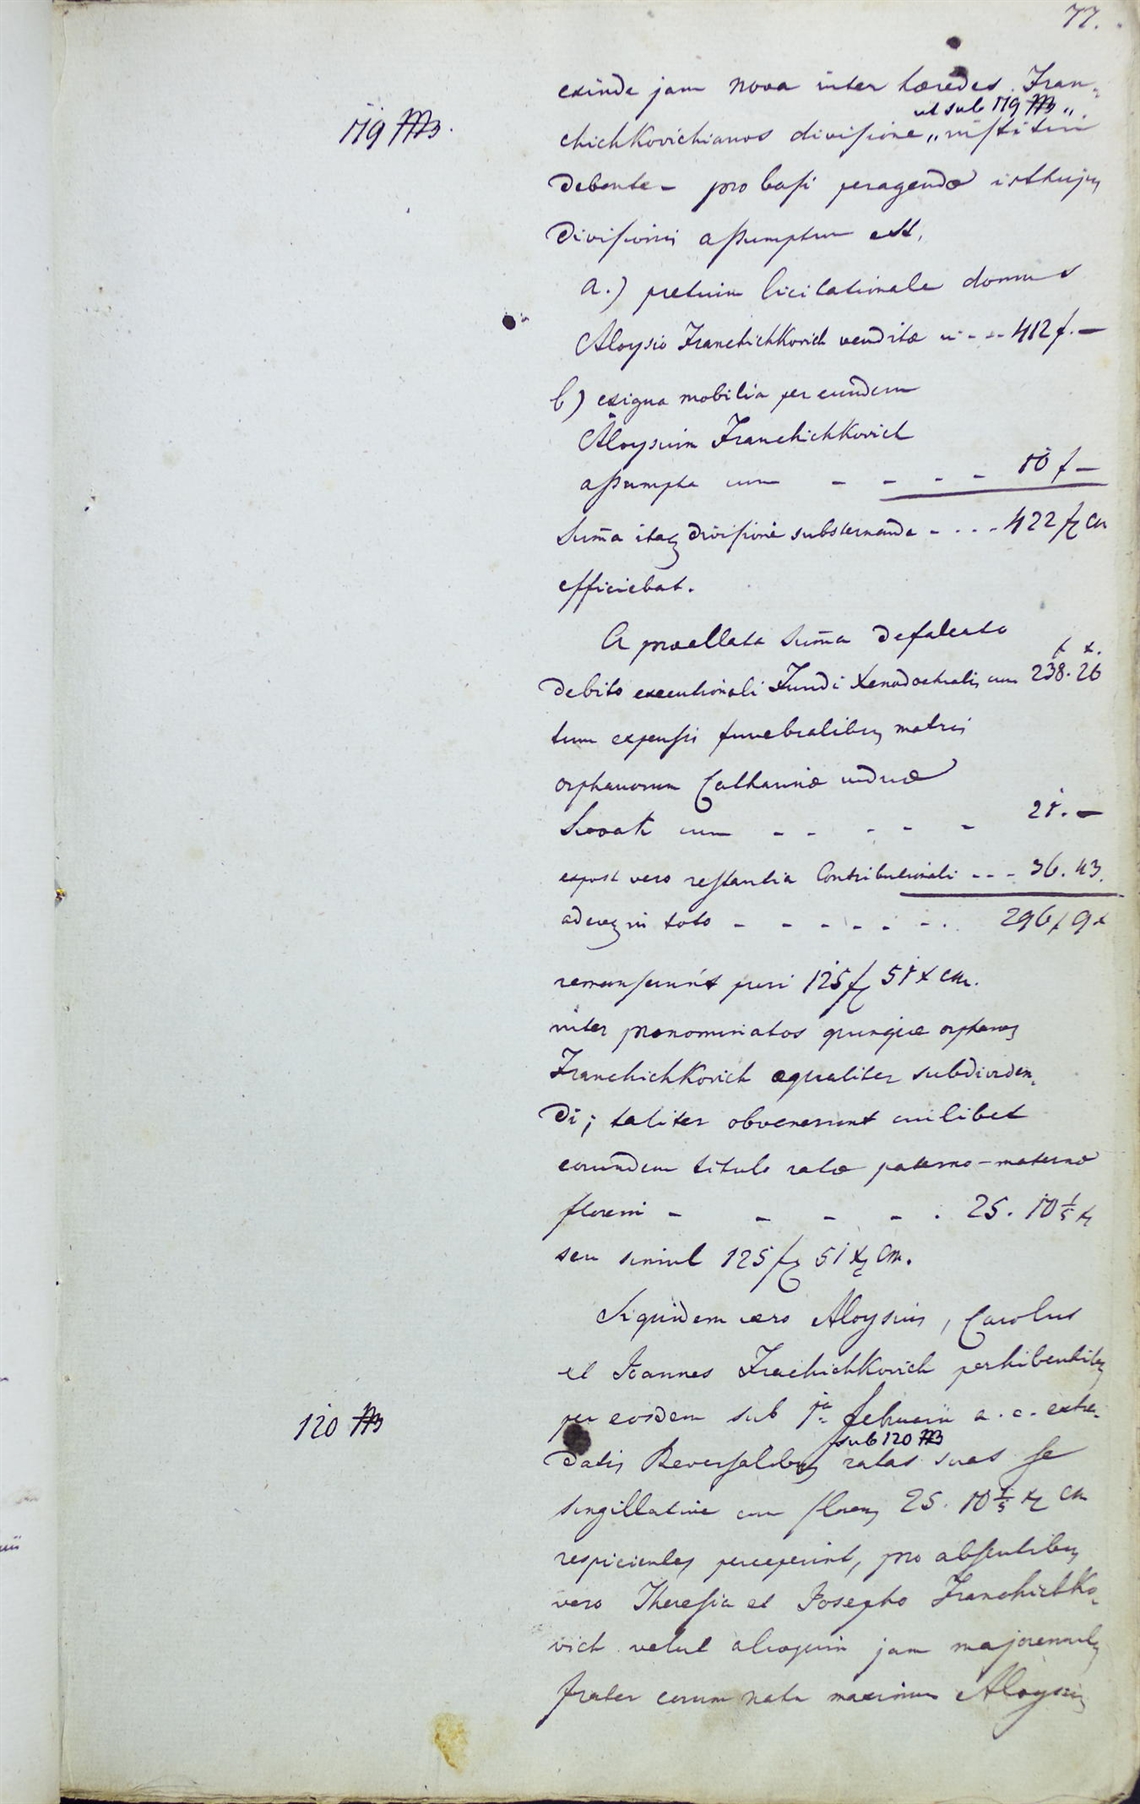 77.
exinde jam nova inter hæredes Fran-
ut sub 119
119
chichkovichianos divisione „ institui
debente – pro basi peragendæ isthujus
divisionis assumptum est,
a.) pretium licitationale domus
Aloysio Franchichkovich venditæ - - - 412 f. –
b) exigua mobilia per eundem
Aloysium Franchichkovich
assumpta cum – – – – 10 f –
Suma itaq divisione substernenda - . . . 422 f Cm
efficiebat.
A præellata Suma defalcato
f x.
debito executionali Fundi Xenodochialis cum 238. 26
tum expensis funebralibus matris
orphanorum Catharinæ viduæ
cum – – – – – 21. –
expost vero restantia Contributionali - - - 36. 43.
adeoq in toto – – – – – – . 296 f 9 x
remanserunt puri 125 f 51 x Cm.
inter prænominatos quinque orphanos
Franchichkovich æqualiter subdividen-
di; taliter obvenerunt cuilibet
eorundem titulo ratæ paterno-maternæ
floreni – – – – . 25. 10 1/5 x
seu simul 125 f 51 x Cm.
Siquidem vero Aloysius, Carolus
et Joannes Frachichkovich perhibentibus
120
per eosdem sub 1a februarii a. c. extra-
sub 120
datis Reversalibus ratas suas se
singillative cum floren 25. 10 1/5 x Cm
respicientes perceperint, pro absentibus
vero Theresia et Josepho Franchichko-
vich velut alioquin jam majorennibus
frater eorum natu maximus Aloysius